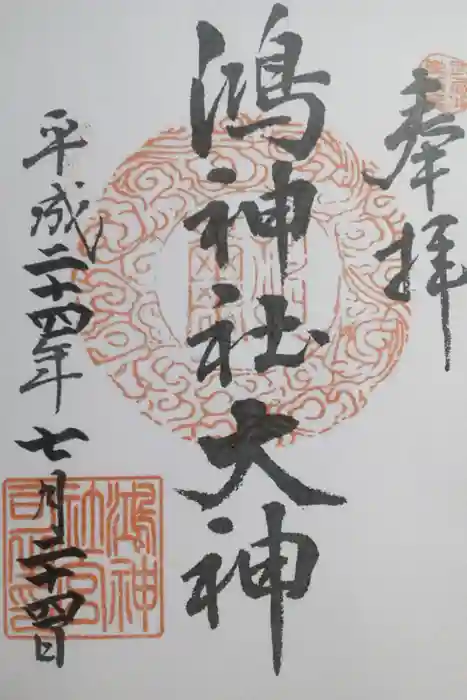 奉拝
鴻神社大神
平成二十四年七月二十四日
鴻神
社宮
司之印